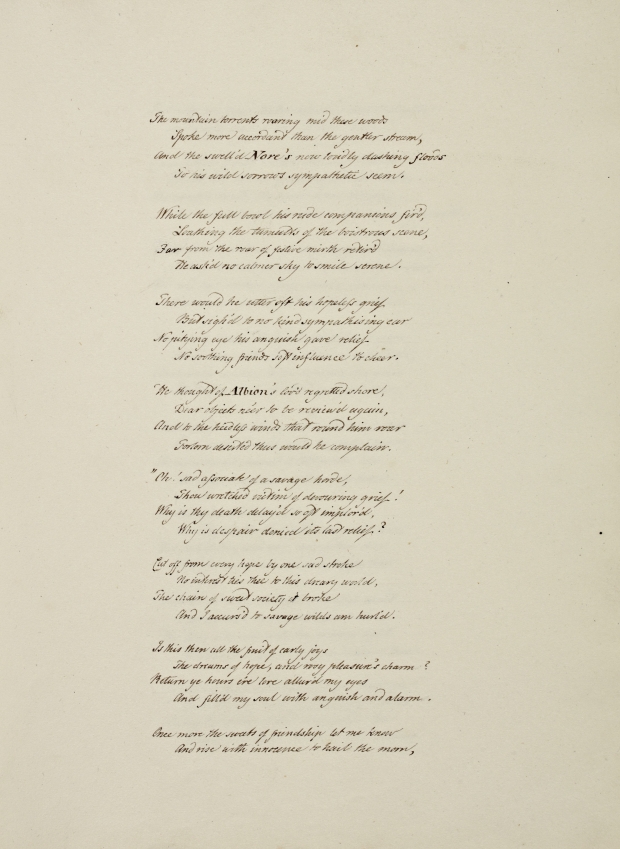 The mountain torrents roaring mid these woods
Spoke more accordant than the gentler stream,
And the swell'd Nore's now loudly dashing floods
To his wild sorrows sympathetic seem.
While the full bowl his rude companions fir'd,
Loathing the tumults of the boistrous scene,
Far from the roar of festive mirth retir'd
He ask'd no calmer sky to smile serene.
There would he utter oft his hopeless grief
But sigh'd to no kind sympathising ear
No pitying eye his anguish gave relief
No soothing friends soft influence to cheer.
He thought of Albion's lov'd regretted shore,
Dear objects ne'er to be review'd again,
And to the heedless winds that round him roar
Forlorn deserted thus would he complain.
"Oh! sad associate of a savage horde,
Thou wretched victim of devouring grief!
Why is thy death delayed so oft implor'd,
Why is despair denied its last relief?
Cut off from every hope by one sad stroke
No interest ties thee to this dreary world,
The chain of sweet society is broke
And I accurs'd to savage wilds am hurl'd.
Is this then all the fruit of early joys
The dreams of hope, and rosy pleasure's charm?
Return ye hours ere love allur'd my eyes
And fill'd my soul with anguish and alarm.
Once more the sweets of friendship let me know
And rise with innocence to hail the morn,